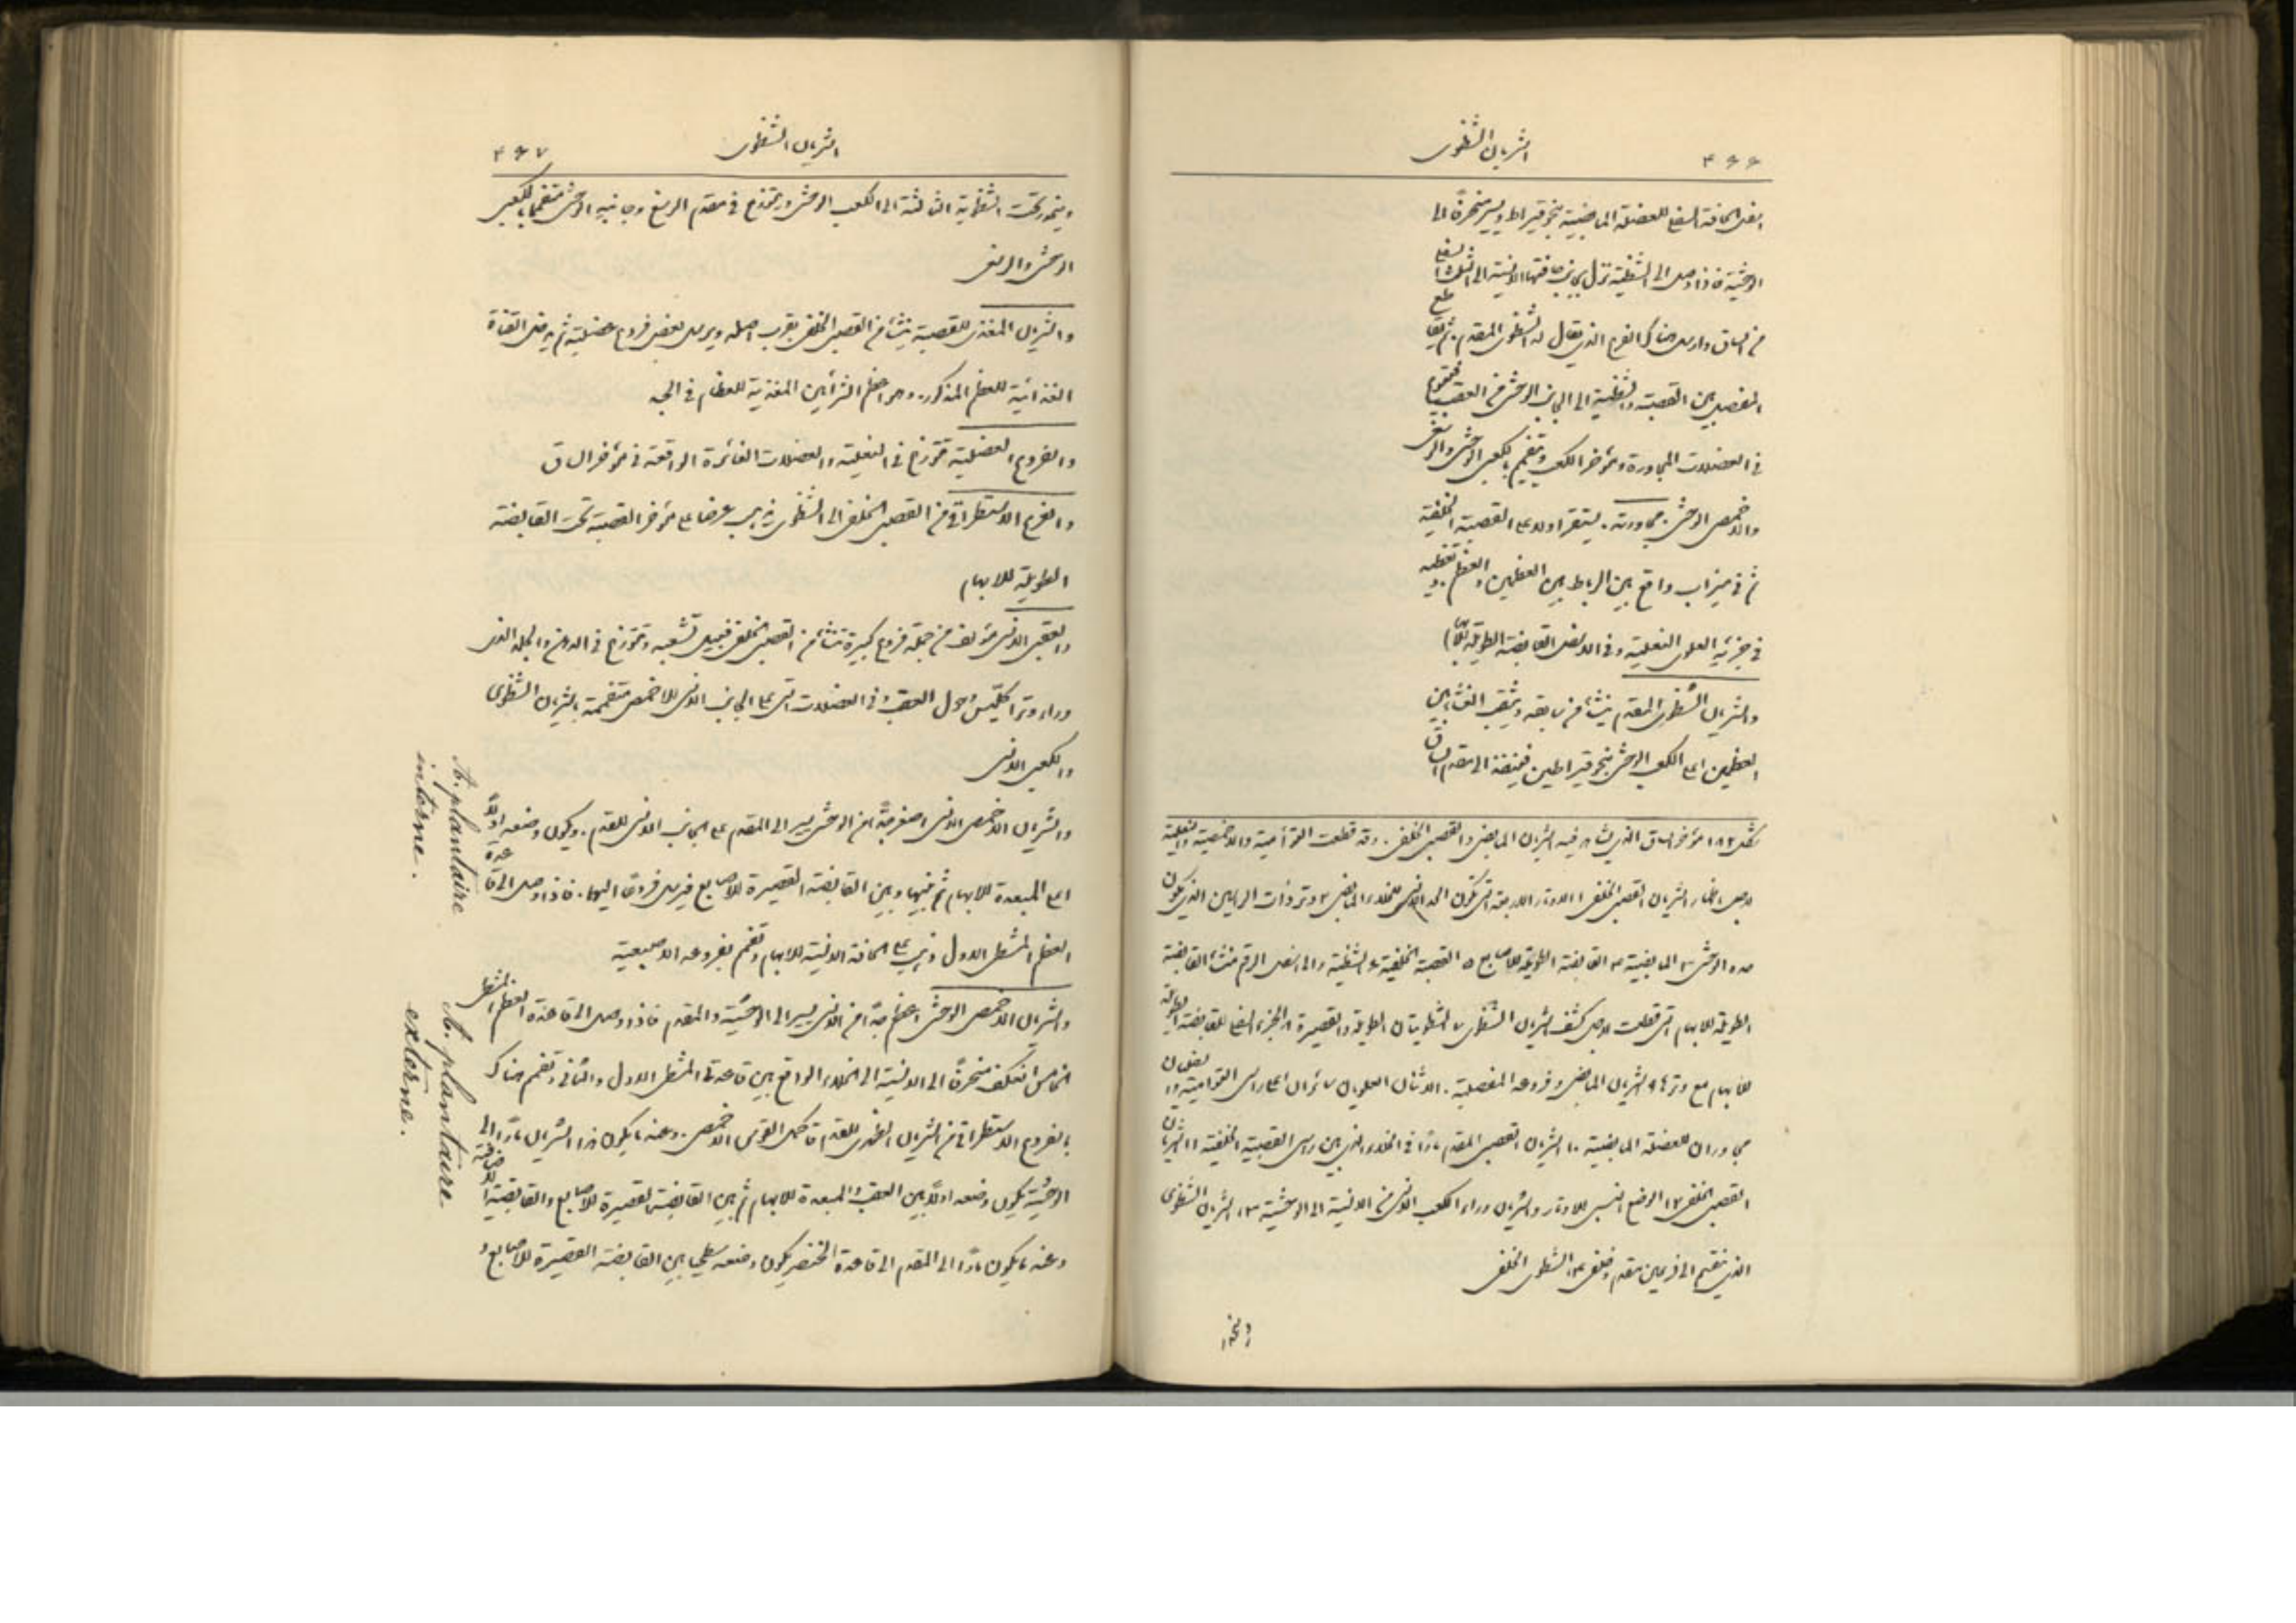 ۴۶۶
الشريان الشظوى
اسفل الحافة السفلى للعضلة المابضية بنحو قيراط ويسير منحرفًا الى
الوحشية فاذا وصل الى الشظية نزل بجانب حافتها الانسية الى الثلث السفلى
من الساق وارسل هناك الفرع الذي يقال له الشظوى المقدم ثم يقاطع
المفصل بين القصبة والشظية الى الجانب الوحشى من العقب
فى العضلات المجاورة ومؤخر الكعب ويتفمم بالكعبى الوحشى والرسغى
والاخمصى الوحشى. مجاورته. يستقر اولا على القصبية الخلفية
ثم فى ميزاب واقع بين الرباط بين العظمين والعظم. وتغطيه
فى جزئه العلوى النعلية وفى الاسفل القابضة الطويلة للابهام
والشريان الشظوى المقدم ينشأ من سابقه ويثقب الغشاء بين
العظمين اعلى الكعب الوحشى بنحو قيراطين فينفذ الى مقدم الساق
شكل ١٨٢ مؤخر الساق الذي يشاهد فيه الشريان المابضى والقصبى الخلفى. وقد قطعت التوأمية والاخمصية والنعلية
لاجل اظهار الشريان القصبى الخلفى ١ الاوتار الاربعة التى تكون الحد الانسى للخلاء المابضى ٢ وتر ذات الراسين الذي يكون
حده الوحشى ٣ المابضية ۴ القابضة الطويلة للاصابع ٥ القصبية الخلفية ۶ الشظية والى اسفل الرقم منشأ القابضة
الطويلة للابهام التى قطعت لاجل كشف الشريان الشظوى ٧ الشظويتان الطويلة والقصيرة ٨ الجزء السفلى للقابضة الطويلة
للابهام مع وترها ٩ الشريان المابضى وفروعه المفصلية. الاثنان العلويان سائران اعلى راسى التوأمية والسفليان
مجاوران للعضلة المابضية ١٠ الشريان القصبى المقدم مارًا فى الخلاء الذي بين راسى القصبية الخلفية ١١ الشريان
القصبى الخلفى ١٢ الوضع النسبى للاوتار والشريان وراء الكعب الانسى من الانسية الى الوحشية ١٣ الشريان الشظوى
الذي ينقسم الى فرعين مقدم وخلفى ١۴ الشظوى الخلفى
۴۶٧
الشريان الشظوى
الشظوية الثالثة الى الكعب الوحشى ويتوزع فى مقدم الرسغ وجانبه الوحشى متفممًا بالكعبى
الوحشى والرسغى
والشريان المغذى للقصبة ينشأ من القصبى الخلفى بقرب اصله ويرسل بعض فروع عضلية ثم يدخل القناة
الغذائية للعظم المذكور. وهو اعظم الشرائين المغذية للعظام فى الجسد
والفروع العضلية تتوزع فى النعلية والعضلات الغائرة الواقعة فى مؤخر الساق
والفرع الاستطراقى من القصبى الخلفى الى الشظوى يذهب عرضًا على مؤخر القصبة تحت القابضة
الطويلة للابهام
والعقبى الانسى مؤلف من جملة فروع كبيرة تنشأ من القصبى الخلفى قبيل تشعبه وتتوزع فى الدهن والجلد الذى
وراء وتر اكليس وحول العقب وفى العضلات التى على الجانب الانسى للاخمص متفممة بالشريان الشظوى
والكعبى الانسى
والشريان الاخمصى الانسى اصغر جدًا من الوحشى يسير الى المقدم على الجانب الانسى للقدم. ويكون وضعه اولًا
اعلى المبعدة للابهام ثم بينها وبين القابضة القصيرة للاصابع فيرسل فروعًا اليهما. فاذا وصل الى قاعدة
العظم المشطى الاول ذهب على الحافة الانسية للابهام وتفمم بفروعه الاصبعية
والشريان الاخمصى الوحشى اعظم جدًا من الانسى يسير الى الوحشية والمقدم فاذا وصل الى قاعدة العظم المشطى
الخامس انعكف منحرفًا الى الانسية الى الخلاء الواقع بين قاعدتى المشطى الاول والثانى وتفمم هناك
بالفروع الاستطراقى من الشريان الظهرى للقدم فاكمل القوس الاخمصى. وعندما يكون هذا الشريان مارًا الى
الوحشية يكون وضعه اولًا بين العقب والمبعدة للابهام ثم بين القابضة القصيرة للاصابع والقابضة الاضافية
وعندما يكون مارًا الى المقدم الى قاعدة الخنصر يكون وضعه سطحيا بين القابضة القصيرة للاصابع و
A. plantaire
interne.
A. plantaire
externe.